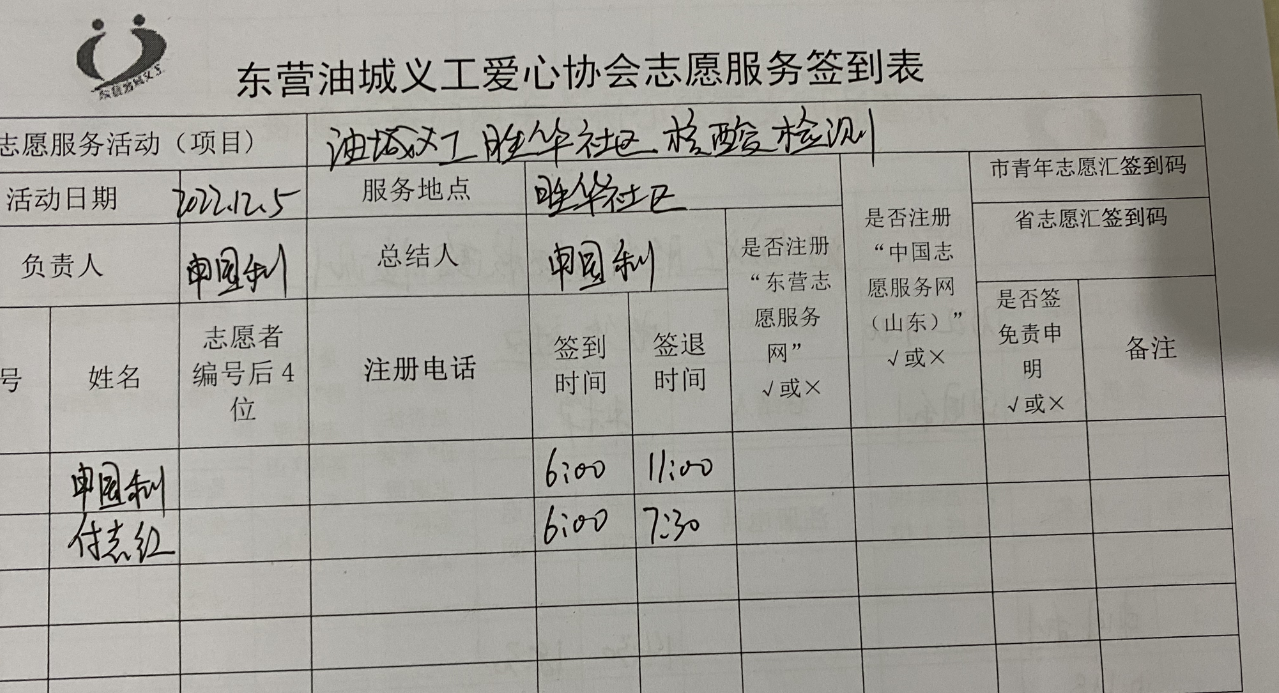 东营油城义工
东营油城义工爱心协会志愿服务签到表
志愿服务活动（项目） 油城义工胜华社区核酸检测
活动日期 2022.12.5 服务地点 胜华社区 市青年志愿汇签到码
省志愿汇签到码
负责人 申国利 总结人 申国利
是否注册
“东营志
愿服务
网”
√或×
是否注册
“中国志
愿服务网
（山东）”
√或×
号 姓名
志愿者
编号后4
位
注册电话
签到
时间
签退
时间
是否签
免责申
明
√或×
备注
申国利 6:00 11:00
付志红 6:00 7:30